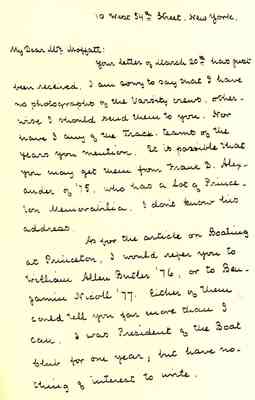 10 West 54th Street, New York.
My Dear Mr. Moffatt:
Your letter of March 20th has just
been received. I am sorry to say that I have
no photographs of the Varsity crews, other-
wise I should send them to you. Nor
have I any of the Track teams of the
years you mention. It is possible that
you may get them from Franc B. Alex-
ander of '75, who has a lot of Prince-
ton Memorabilia. I don't know his
address.
As for the article on Boating
at Princeton, I would refer you to
William Allen Butler '76, or to Ben-
jamin Nicoll '77. Either of them
could tell you far more than I
can. I was President of the Boat
Club for one year, but have no-
thing of interest to write.